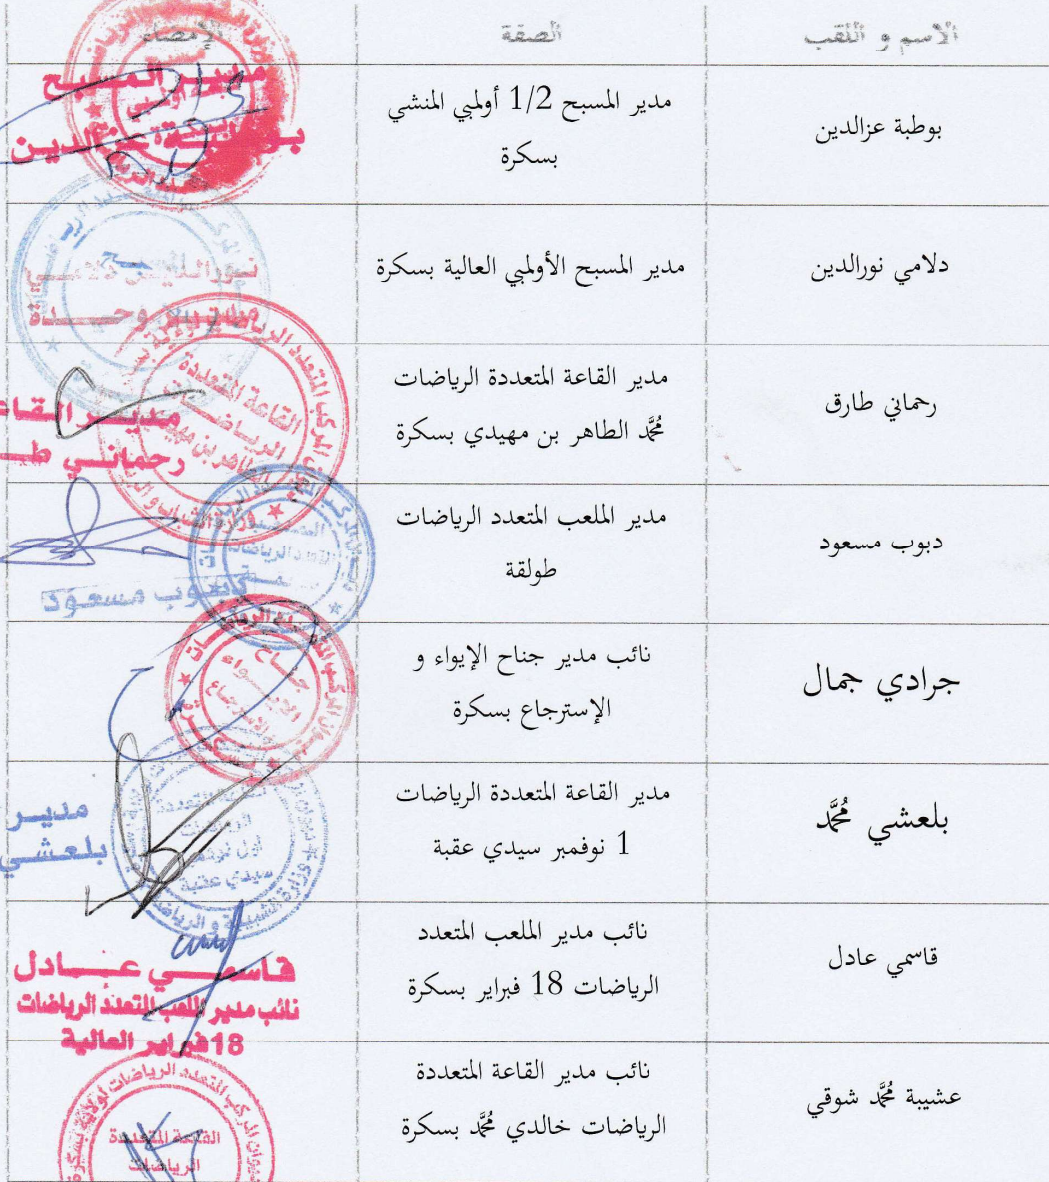 الاسم و اللقب
الصفة
الإمضاء
بوطبة عزالدين
مدير المسبح 1/2 أولمبي المنشي
بسكرة
مدير المسبح
دلامي نورالدين
مدير المسبح الأولمبي العالية بسكرة
رحماني طارق
مدير القاعة المتعددة الرياضات
محمد الطاهر بن مهيدي بسكرة
القاعة المتعددة
رحماني
دبوب مسعود
مدير الملعب المتعدد الرياضات
طولقة
مسعود
جرادي جمال
نائب مدير جناح الإيواء و
الإسترجاع بسكرة
جناح
بلعشي محمد
مدير القاعة المتعددة الرياضات
1 نوفمبر سيدي عقبة
مدير
بلعشي
سيدي عقبة
قاسمي عادل
نائب مدير الملعب المتعدد
الرياضات 18 فبراير بسكرة
قاسمي عادل
نائب مدير الملعب المتعدد الرياضات
18 فبراير العالية
عشيبة محمد شوقي
نائب مدير القاعة المتعددة
الرياضات خالدي محمد بسكرة
القاعة المتعددة
الرياضات